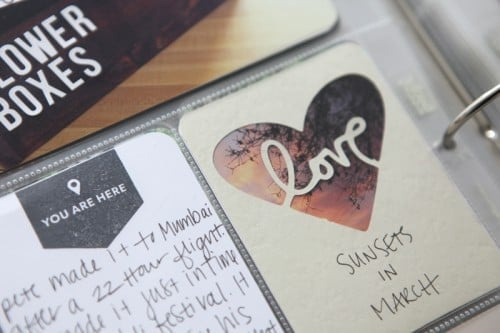 LOWER
BOXES
YOU ARE HERE
pete made it to Mumbai
after a 22 Hour flight
made it just in time
festival. It
his
love
SUNSETS
IN
MARCH